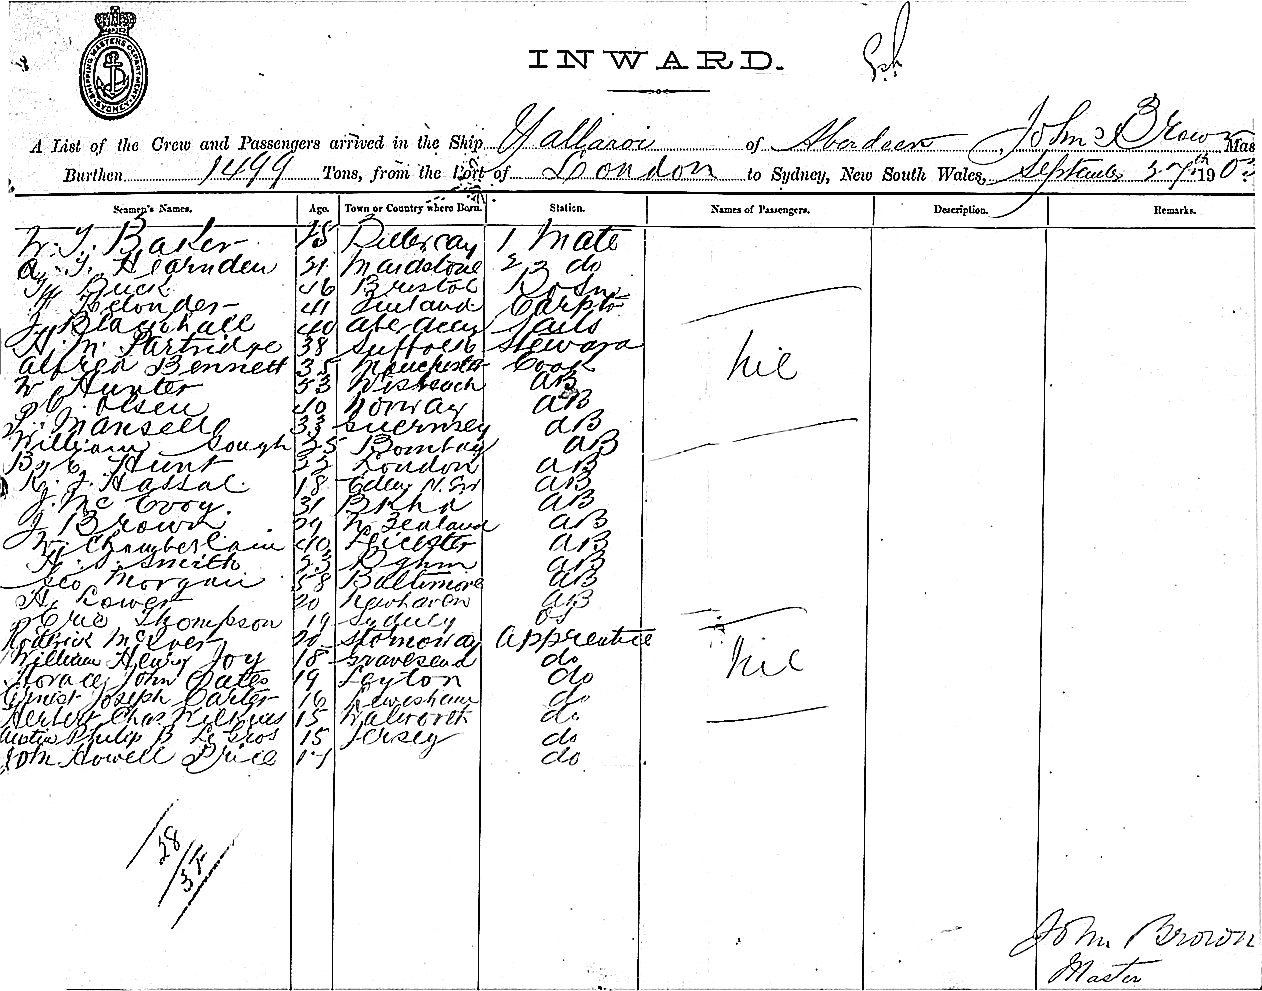 SHIPPING MASTERS DEPARTMENT SYDNEY
INWARD.
A List of the Crew and Passengers arrived in the Ship Yallaroi of Aberdeen John Brown Mas
Burthen 1499 Tons, from the Port of London to Sydney, New South Wales, September 27th 190
Seamen's Names. Age. Town or Country where Born. Station. Names of Passengers. Description. Remarks.
W. J. Baker 1 Mate
Hearnden 21 Maidstone 2 do
Buck 46 Bristol Bosn
41 Finland Carptr
J. Blackhall 40 Aberdeen Sails
H. M. Partridge 38 Suffolk Steward
Alfred Bennett 35 Manchester Cook
Nil
W Hunter 53 Wisbeach AB
Olsen 40 Norway AB
Mansell 33 Guernsey AB
William Gough 25 Bombay AB
Hunt 22 London AB
Hassal 18 AB
J. Mc Evoy. 31 AB
J Brown 29 N Zealand AB
W. Chamberlain 40 Leicester AB
H. Smith 53 AB
Geo Morgan 58 Baltimore AB
H. Lower 20 Newhaven AB
Eric Thompson 19 Sydney OS
Roderick McIver 20 Stornoway Apprentice
William Henry Joy 18 Gravesend do
Nil
Horace John Oates 19 Leyton do
Ernest Joseph Carter 16 Lewisham do
Herbert Chas Wilkins 15 Walworth do
Austin Philip B Le Gros 15 Jersey do
Howell Price 17 do
28
John Brown
Master